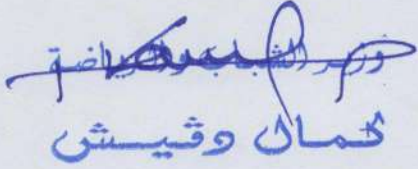 وزير الشباب والرياضة
كمال دقيش